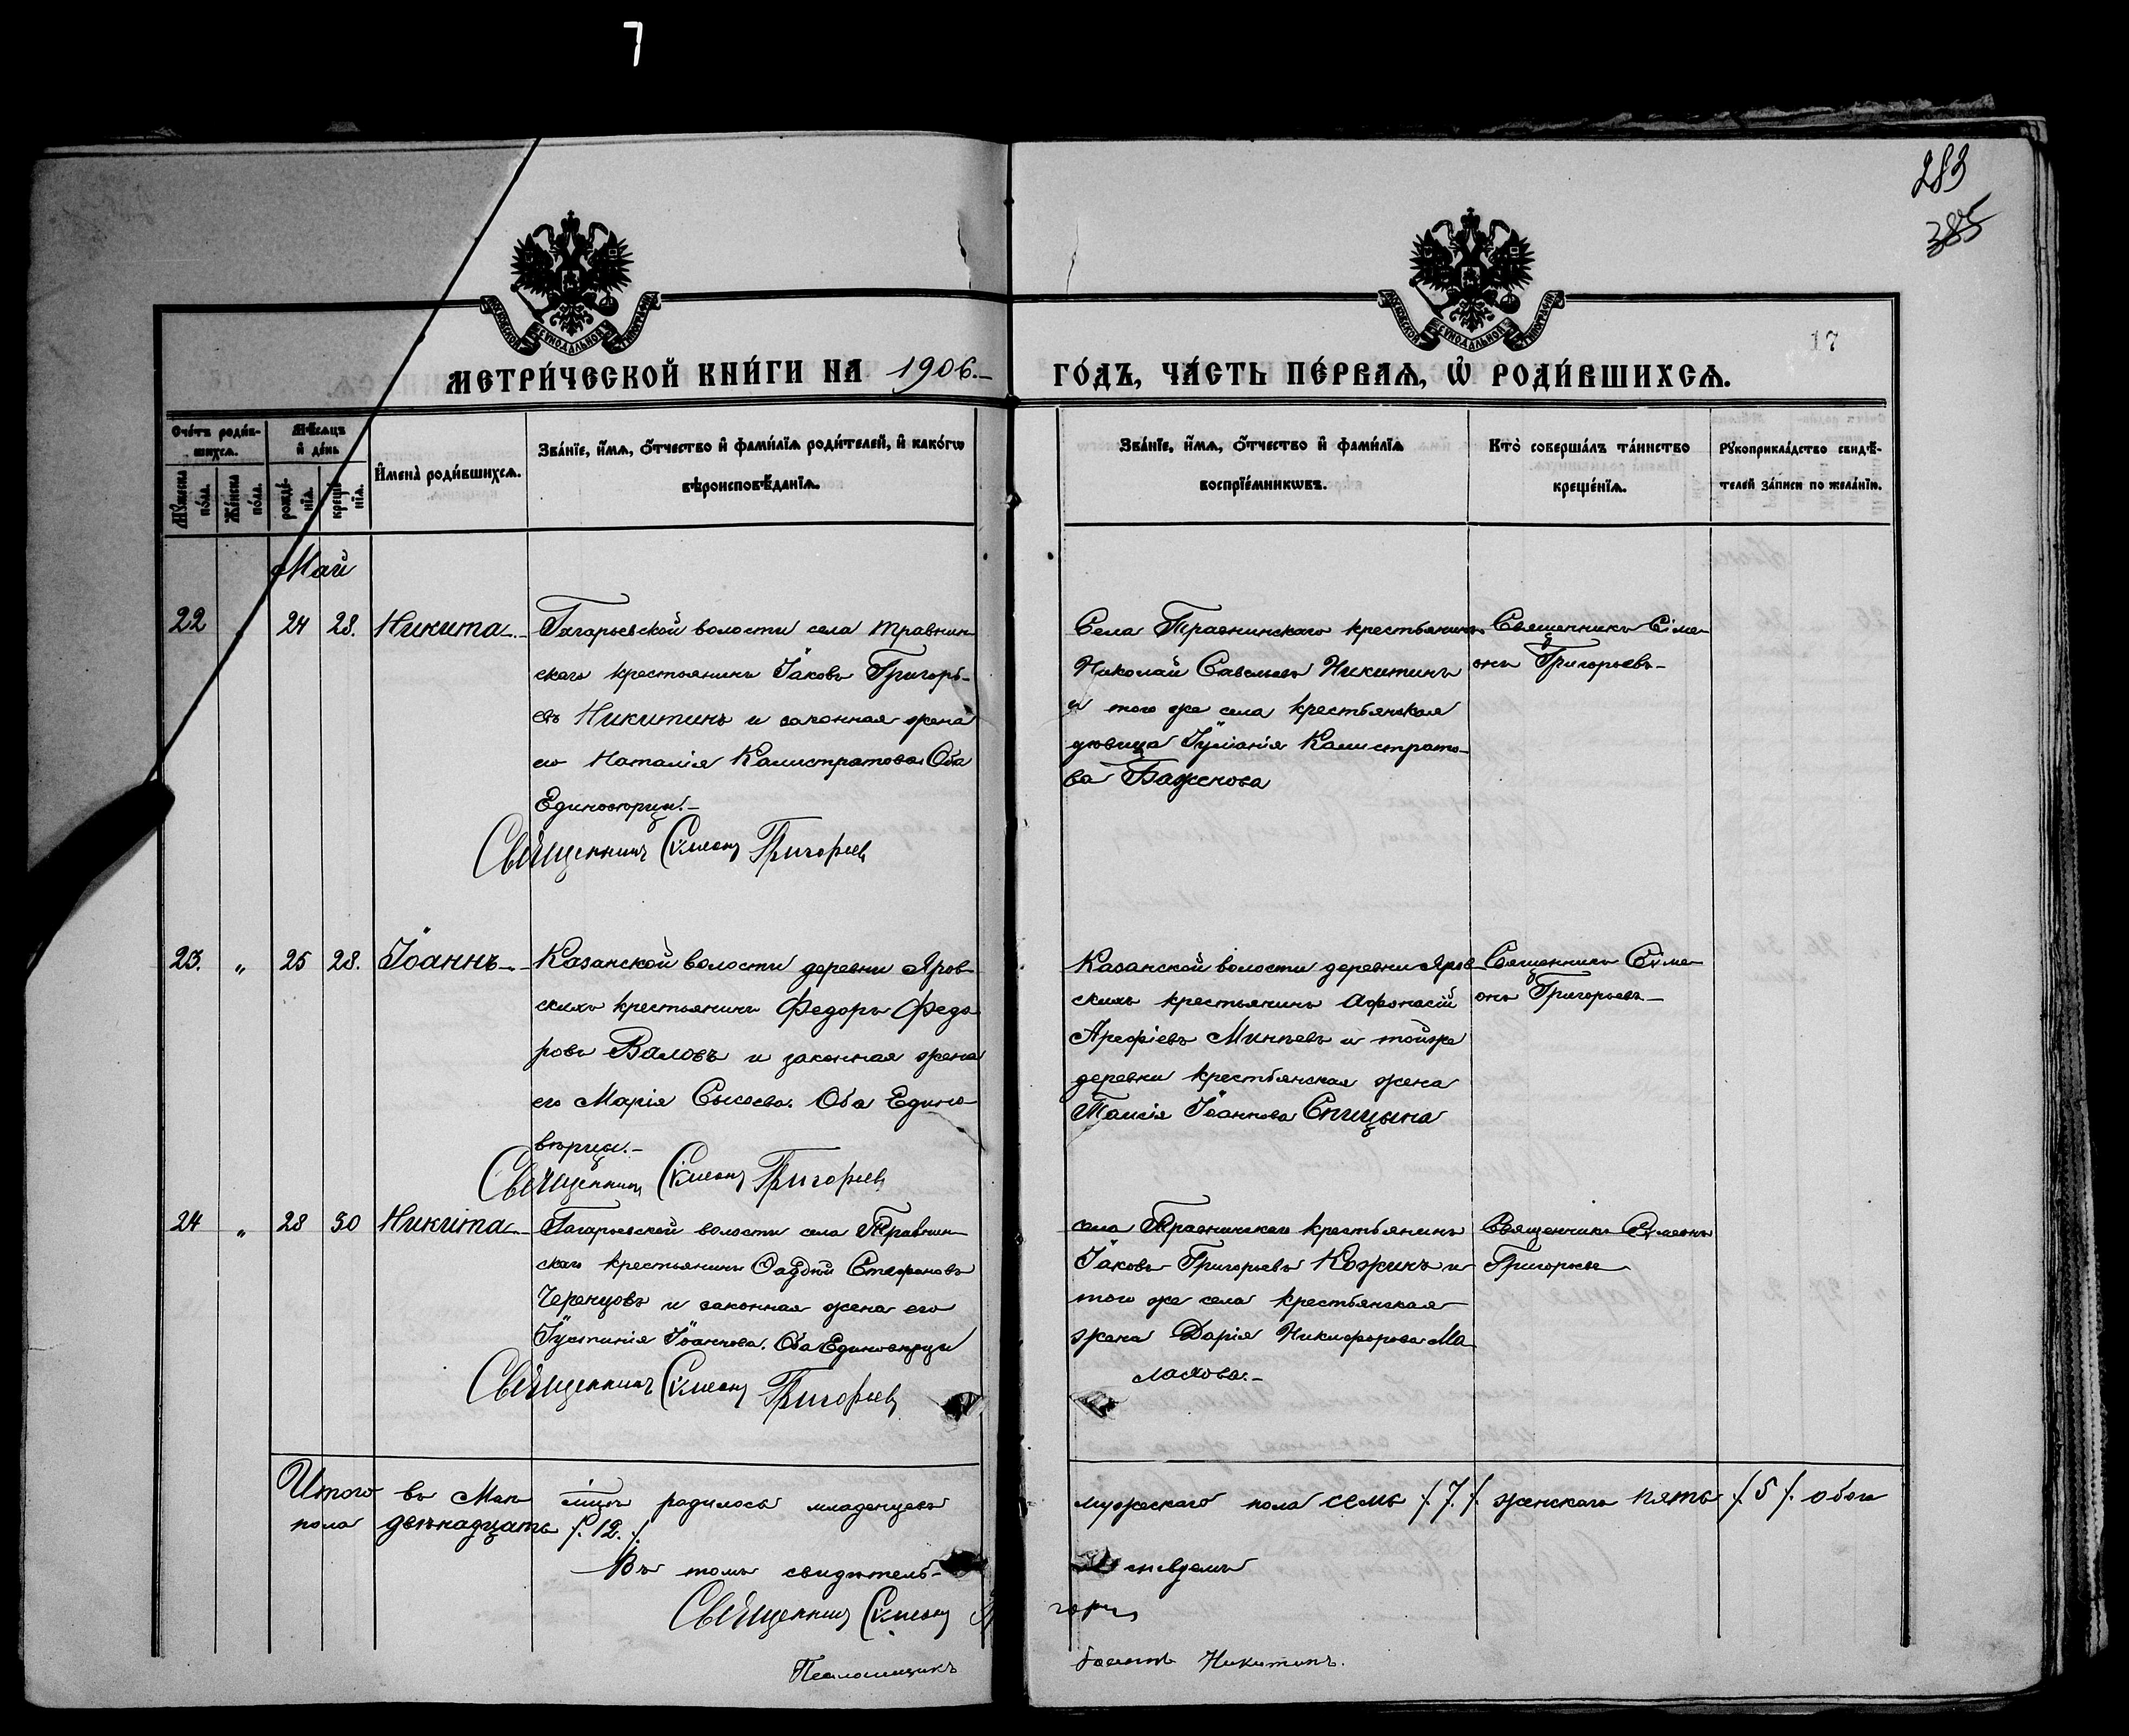 7
283
385
17
МОСКОВСКОЙ СѴНОДАЛЬНОЙ ТИПОГРАФІИ
МОСКОВСКОЙ СѴНОДАЛЬНОЙ ТИПОГРАФІИ
МЕТРИ́ЧЕСКОЙ КНИ́ГИ НА 1906.- ГО́ДЪ, ЧА́СТЬ ПЕ́РВАѦ, Ѡ҆ РОДИ́ВШИХСѦ.
Сче́тъ роди́в-
шихсѧ.
Мѣ́сѧцъ
и҆ де́нь
Мꙋ́жеска по́ла.
Же́нска по́ла.
рожде́-нїѧ.
креще́-нїѧ.
И҆мена̀ роди́вшихсѧ.
Зва́нїе, и҆́мѧ, ѻ҆́тчество и҆ фами́лїѧ роди́телей, и҆ како́гѡ
вѣроисповѣ́данїѧ.
Зва́нїе, и҆́мѧ, ѻ҆́тчество и҆ фами́лїѧ
воспрїе́мникѡвъ.
Кто̀ соверша́лъ та́инство
креще́нїѧ.
Рꙋкоприкла́дство свидѣ́-
телей за́писи по жела́нїю.
Май
22 24 28. Никита.-
Гагарьевской волости села Травнин
скаго крестьянинъ Іаковъ Григорь-
евъ Никитинъ и законная жена
его Наталія Калистратова Оба
Единовѣрцы.-
Священникъ Сѵмеонъ Григорьевъ
Села Травнинскаго крестьянинъ
Николай Савельевъ Никитинъ
и того же села крестьянская
дѣвица Іуліанія Калистрато-
ва Баженова
Священникъ Сѵме
онъ Григорьевъ-
23. „ 25 28. Іоаннъ.-
Казанской волости деревни Яров
скихъ крестьянинъ Федоръ Федо
ровъ Валовъ и законная жена
его Марія Сысоева. Оба Едино-
вѣрцы.-
Священникъ Сѵмеонъ Григорьевъ
Казанской волости деревни Яров
скихъ крестьянинъ Афонасій
Арефіевъ Минѣевъ и тойже
деревни крестьянская жена
Таисія Іоаннова Спицына
Священникъ Сѵме
онъ Григорьевъ-
24 „ 28 30 Никита.-
Гагарьевской волости села Травнин
скаго крестьянинъ Стефановъ
Черенцовъ и законная жена его
Іустинія Іоаннова. Оба Единовѣрцы
Священникъ Сѵмеонъ Григорьевъ
села Травнинскаго крестьянинъ
Іаковъ Григорьевъ Кожинъ и
того же села крестьянская
жена Дарія Никифорова Ма
лахова.-
Священникъ Сѵмеонъ
Григорьевъ
Итого въ Маи мѣсяцѣ родилось младенцевъ мужескаго пола семь /.7./. женскаго пять /.5/. обоего
пола двѣнадцать /.12./
Въ томъ свидѣтель-
Священникъ Сѵмеонъ
Псаломщикъ Никитинъ.